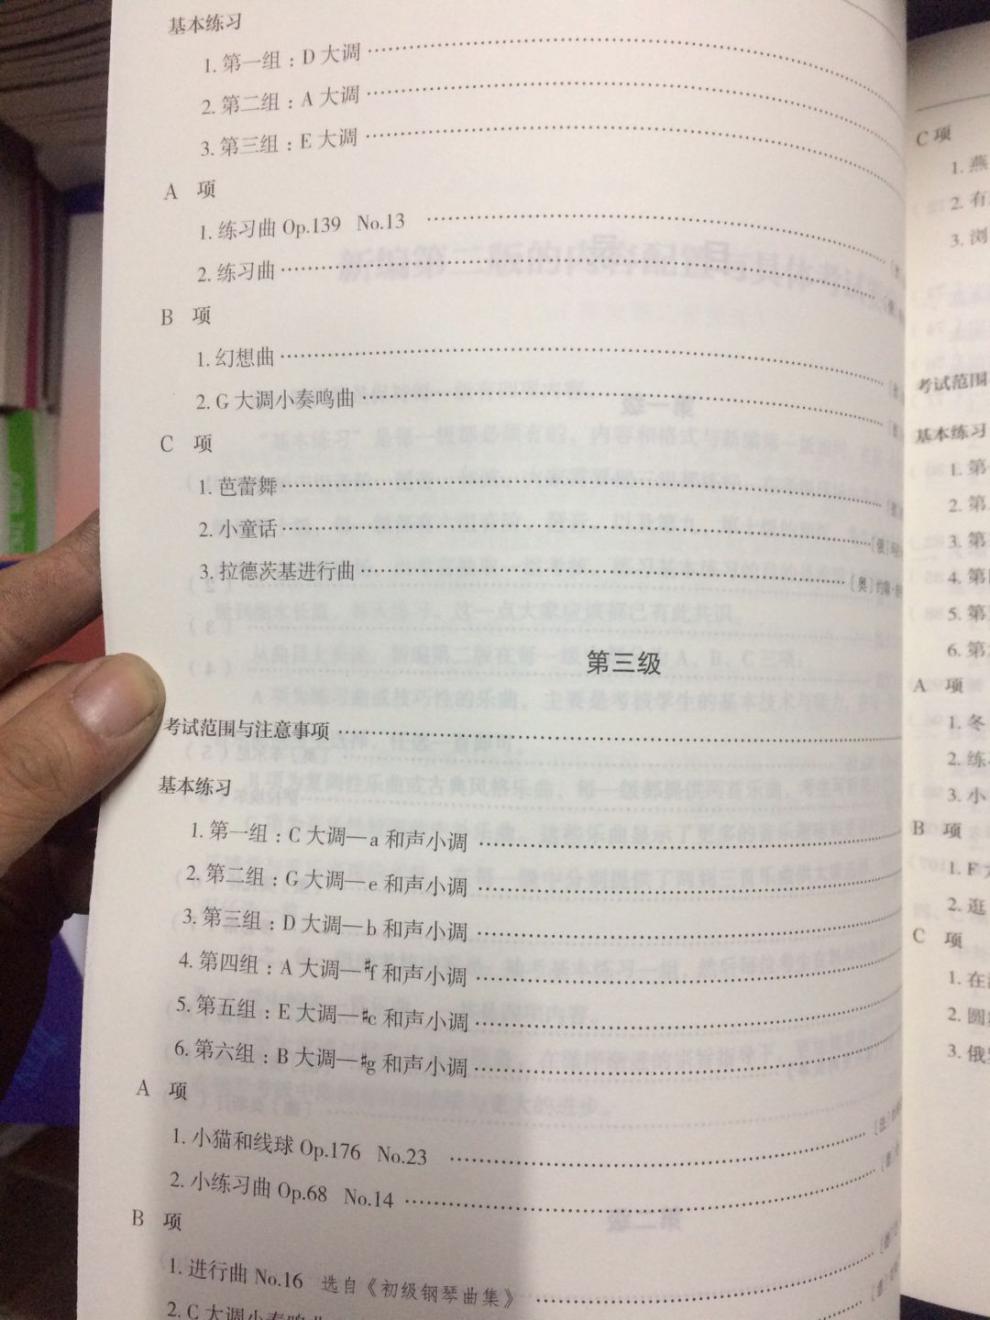 基本练习
1. 第一组：D 大调
2. 第二组：A 大调
3. 第三组：E 大调
A 项
1. 练习曲 Op.139 No.13
2. 练习曲
B 项
1. 幻想曲
2. G 大调小奏鸣曲
C 项
1. 芭蕾舞
2. 小童话
3. 拉德茨基进行曲 〔奥〕约翰·
第三级
考试范围与注意事项
基本练习
1. 第一组：C 大调—a 和声小调
2. 第二组：G 大调—e 和声小调
3. 第三组：D 大调—b 和声小调
4. 第四组：A 大调—♯f 和声小调
5. 第五组：E 大调—♯c 和声小调
6. 第六组：B 大调—♯g 和声小调
A 项
1. 小猫和线球 Op.176 No.23
2. 小练习曲 Op.68 No.14
B 项
1. 进行曲 No.16 选自《初级钢琴曲集》
2. C 大调小奏鸣曲
C 项
1. 燕
2. 有
3. 浏
考试范围
基本练习
1. 第
2. 第
3. 第
4. 第
5. 第
6. 第
A 项
1. 冬
2. 练
3. 小
B 项
1. F
2. 逛
C 项
1. 在
2. 圆
3. 俄